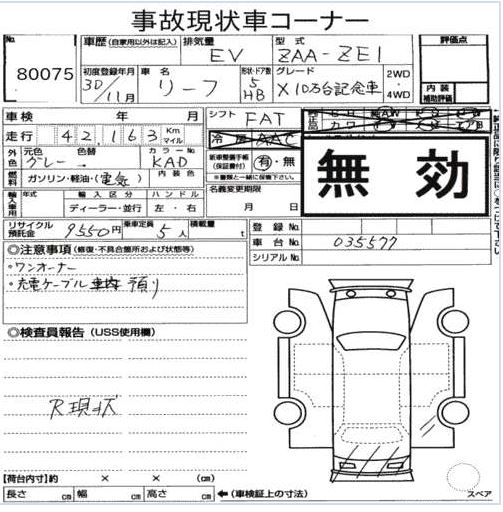 事故現状車コーナー
No. 80075
車歴 (自家用以外は記入)
排気量 EV
型式 ZAA-ZE1
評価点
初度登録年月 30年 11月
車名 リーフ
形状・ドア数 5 HB
グレード X 10万台記念車
2WD・4WD
内装補助評価
車検 年 月
シフト FAT
走行 42,163 Km マイル
冷房 AAC
外色 元色 グレー 色替 カラーNo. KAD
新車整備手帳(保証書付) 有・無
※書類と一緒に保管下さい。
無効
燃料 ガソリン・軽油・(電気) 内装色
名義変更期限 月 日
輸入車用 年式 輸入区分 ハンドル
ディーラー・並行 左・右
リサイクル預託金 9550円
乗車定員 5人
積載量 t
登録No.
車台No. 035577
シリアルNo.
◎注意事項 (修復・不具合箇所および状態等)
・ワンオーナー
・充電ケーブル 車内 預り
◎検査員報告 (USS使用欄)
R現状
【荷台内寸】約 × × (cm)
長さ cm 幅 cm 高さ cm ←(車検証上の寸法)
スペア